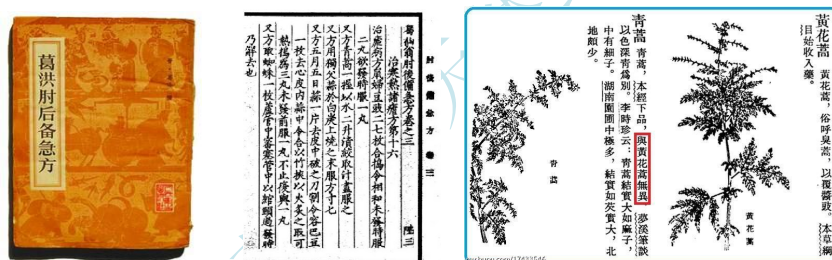 葛洪肘后备急方
肘後備急方 卷三
葛仙翁肘後備急方卷之三 陸三
治寒熱諸瘧方第十六
治瘧病方鼠婦豆豉二七枚合搗令相和未發時服
二丸欲發時服一丸
又方青蒿一握以水二升漬絞取汁盡服之
又方用獨父蒜於白炭上燒之末服方寸匕
又方五月五日蒜一片去皮中破之刀割令容巴豆
一枚去心皮內蒜中令合以竹挾以火炙之取可
熱搗為三丸未發前服一丸不止復與一丸
又方取蜘蛛一枚蘆管中密塞管中以綰頸過發時
乃解去也
黃花蒿 黃花蒿,俗呼臭蒿,以覆醬豉,本草綱
目始收入藥。
黃花蒿
青蒿 青蒿,本經下品,與黃花蒿無異。夢溪筆談
以色深青爲別。李時珍云:青蒿結實大如麻子,
中有細子。湖南園圃中極多,結實如芡實大,北
地頗少。
青蒿